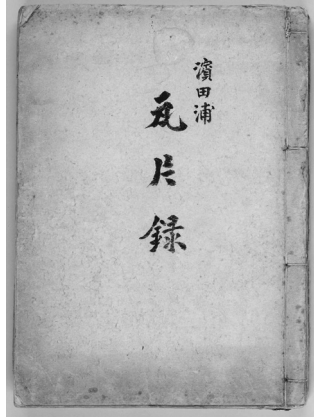 濱田浦
瓦片録